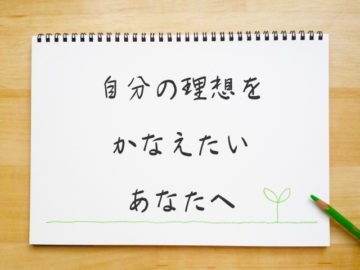 自分の理想を
かなえたい
あなたへ